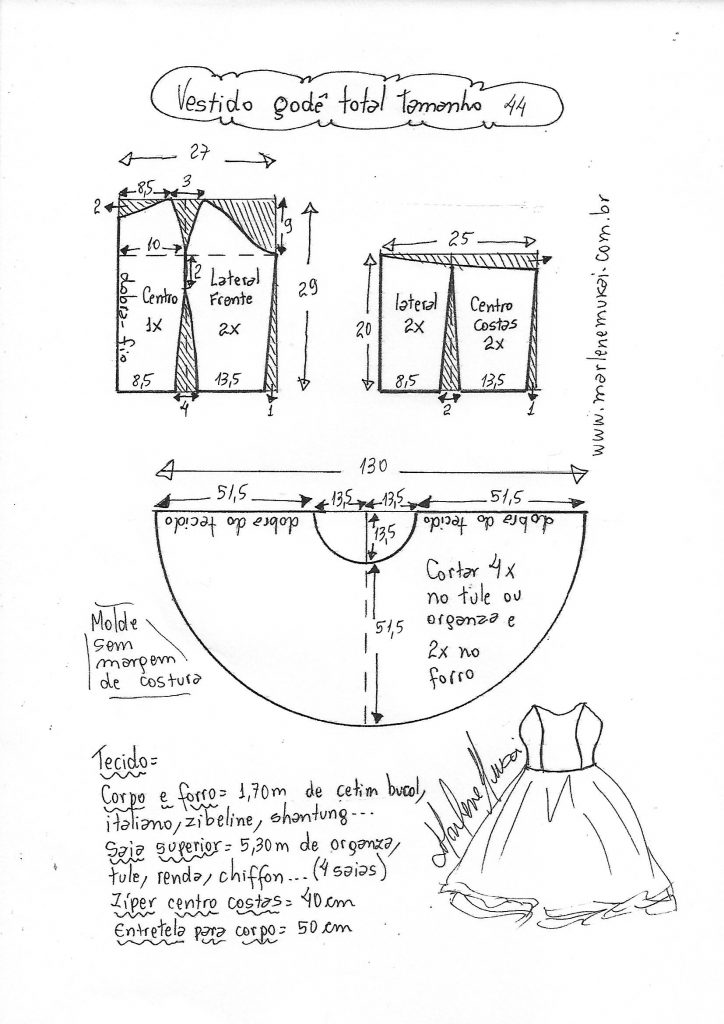 Vestido godê total Tamanho 44
27
8,5 3
2
9
10
2
29
dobra-fio
Centro
1x
Lateral
Frente
2x
8,5 13,5
4 1
25
20
lateral
2x
Centro
Costas
2x
8,5 13,5
2 1
www.marlenemukai.com.br
130
51,5 13,5 13,5 51,5
dobra do tecido dobra do tecido
13,5
51,5
Cortar 4x
no tule ou
organza e
2x no
forro
Molde
sem
margem
de costura
Tecido=
Corpo e forro= 1,70m de cetim bucol,
italiano, zibeline, shantung...
Saia superior= 5,30m de organza,
tule, renda, chiffon... (4 saias)
Zíper centro costas= 40cm
Entretela para corpo= 50 cm
Marlene Mukai